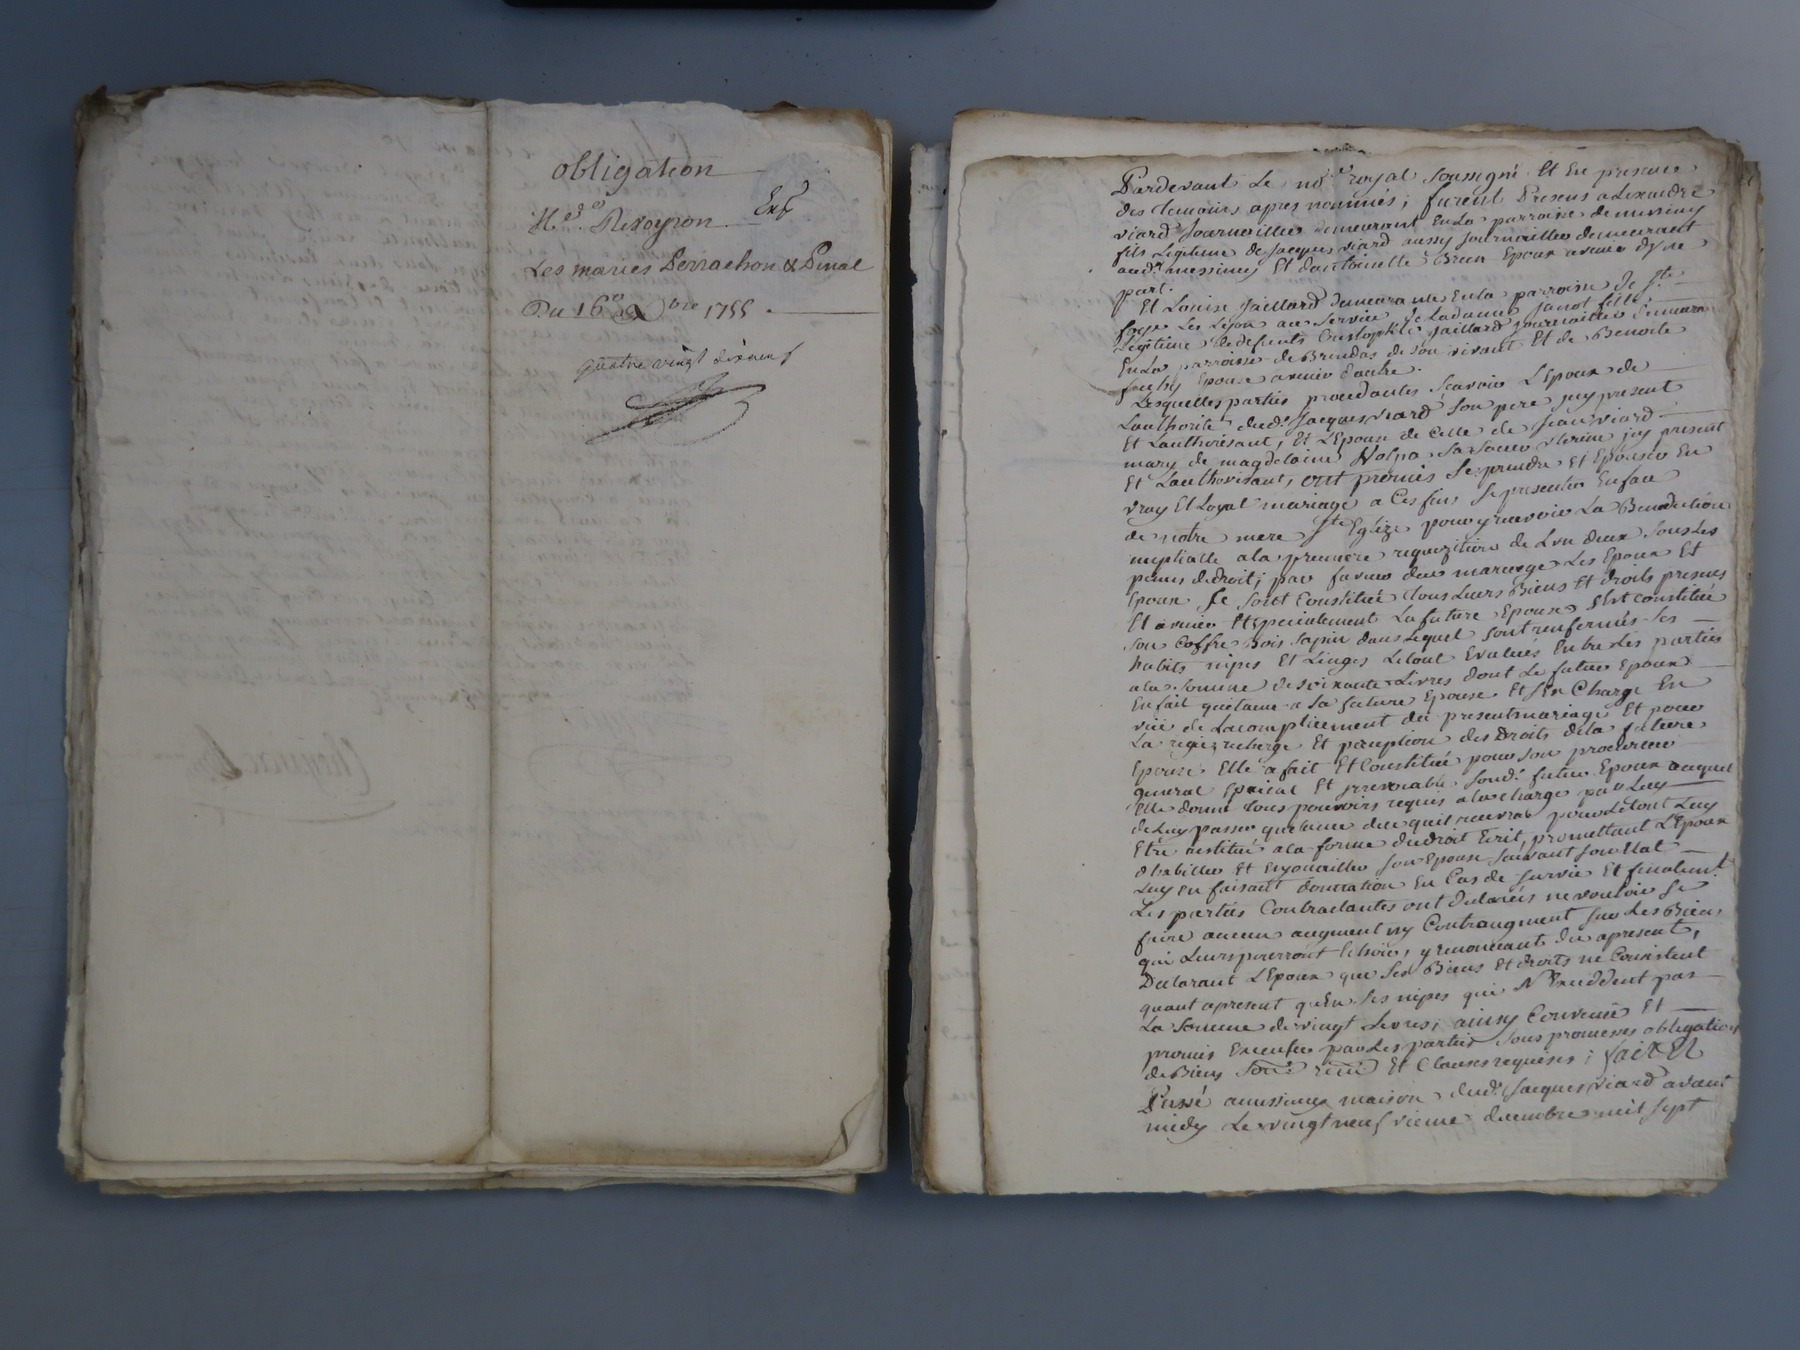 obligation
Les mariés Perrachon & Pinal
Du 16e Xbre 1755
quatre vingt dixneuf
Pardevant Le nore royal soussigné Et En presence
des temoins apres nommés, furent Presens alexandre
viard journaillier demeurant En La parroisse de messimy
fils Legitime de Jacques viard aussy journaillier demeurant
aud. messimy Et d'antoinette Brun Epoux avenir d'une
part.
Et Louise Gaillard demeurante En la parroisse de ste
foye Les Lyon au service de La dame Janot fille
Legitime de deffunts Christophle Gaillard journaillier demeurant
En La parroisse de Brindas de son vivant Et de Benoite
Epouse avenir d'autre.
Lesquelles parties procedantes sçavoir L'Epoux de
L'authorité dud. Jacques viard son pere icy present
Et L'authorisant, Et L'Epouse de Celle de Jean viard
mary de magdelaine Volpa sa soeur uterine icy present
Et L'authorisant, ont promis se prendre Et Epouser En
vray Et Loyal mariage a Ces fins se presenter En face
de notre mere ste Eglize pour y recevoir La Benediction
nuptialle a la premiere requizition de L'un d'eux sous Les
peines de droit; par faveur du mariage Les Epoux Et
Epouse se sont Constitué tous Leurs Biens Et droits presens
Et avenir Et specialement La future Epouse s'est constitué
son Coffre Bois sapin dans Lequel sont renfermés ses
habits nipes Et Linges Le tout Evalués Entre Les parties
a la somme de soixante Livres dont Le futur Epoux
En fait quittance a la future Epouse Et s'En Charge En
vüe de L'acomplissement du present mariage Et pour
La regie recherge Et perception des Droits de la future
Epouse Elle a fait Et Constitué pour son procureur
general special Et irrevocable sond. futur Epoux auquel
Elle donne tous pouvoirs requis a la charge par Luy
de Luy passer quittance de ce qu'il recevra pour Le tout Luy
Etre restitué a la forme du droit Ecrit, promettant L'Epoux
d'habiller Et Enjouailler son Epouse suivant son Etat
Luy en faisant donnation En Cas de survie Et finalement
Les parties Contractantes ont declarés ne vouloir se
faire aucun augment ny Contraugment sur Les Biens
qui Leurs pourront Echoir, y renonceant des apresent,
Declarant L'Epoux que ses Biens Et droits ne Consistent
quant apresent qu'En ses nipes qui N'Exceddent pas
La somme de vingt Livres; ainsy Convenu Et
promis Executer par Les parties sous promesses obligation
de Biens Et Clauses requises; fait Et
Passé a messimy maison dud. Jacques viard avant
midy Le vingt neuf vieme decembre mil sept